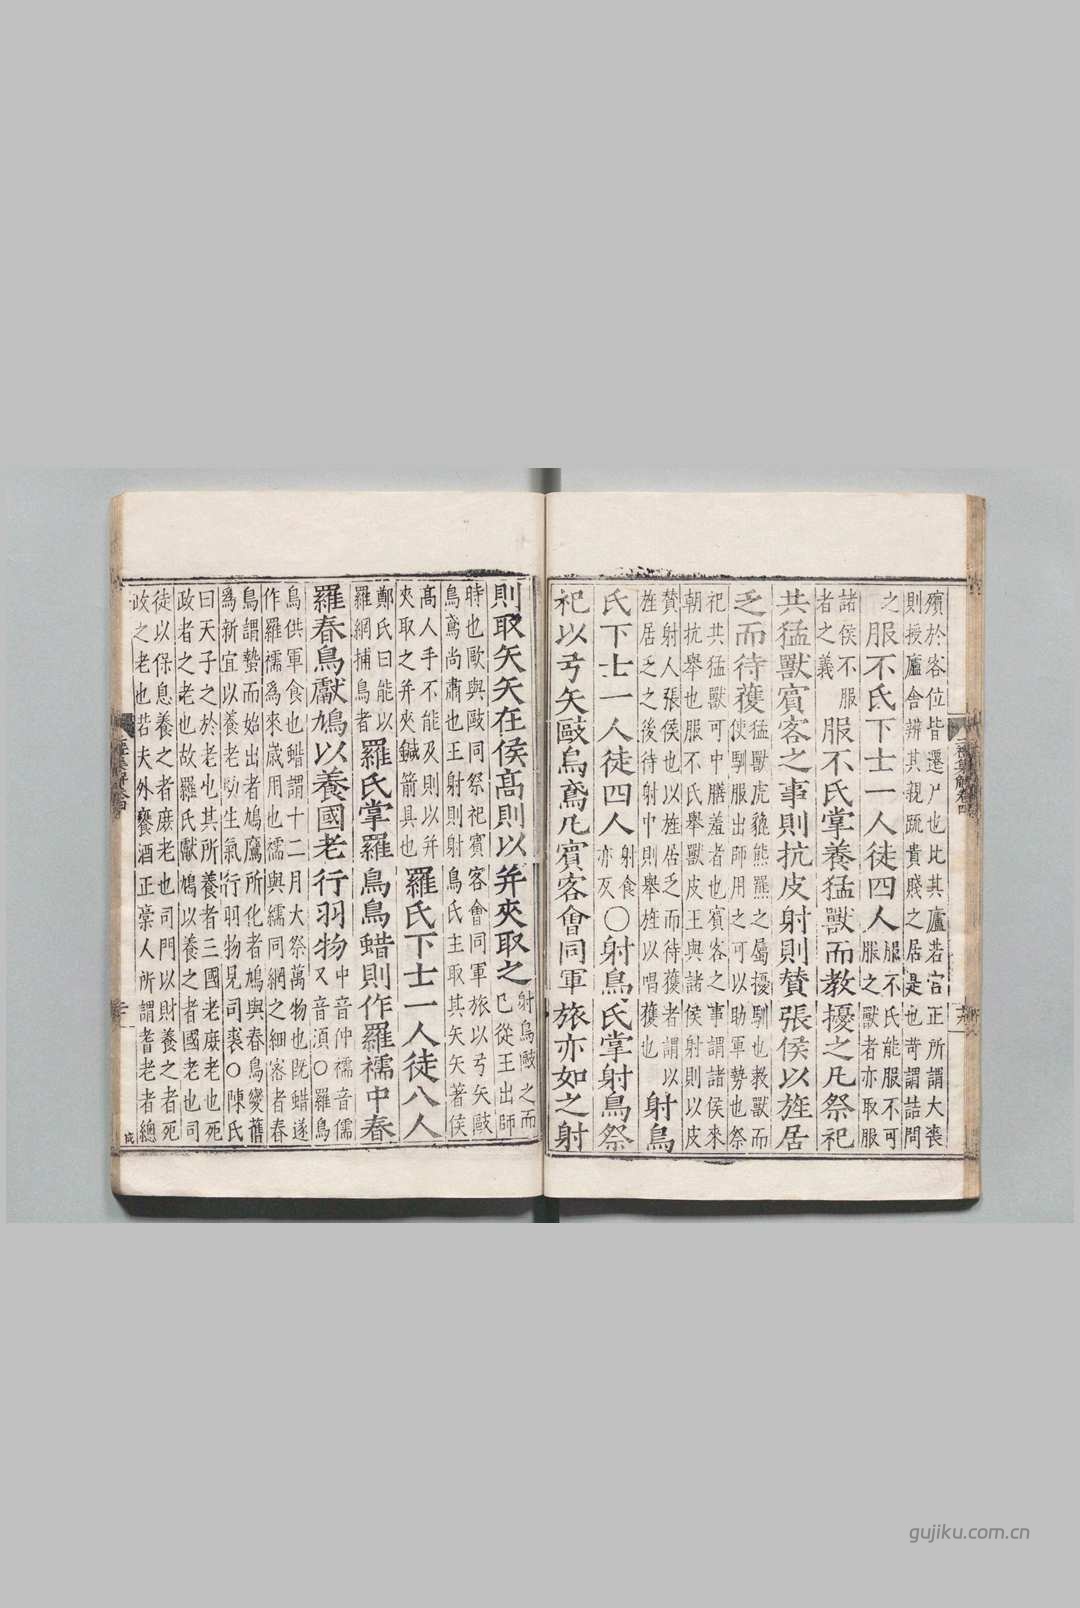 殯於客位皆遷尸也比其廬若宮正所謂大喪
則授廬舍辨其親疏貴賤之居是也苛謂詰問
之 服不氏下士一人徒四人 服不氏能服不可
服之獸者亦取服
諸侯不服
者之義 服不氏掌養猛獸而教擾之凡祭祀
共猛獸賓客之事則抗皮射則贊張侯以旌居
乏而待獲 猛獸虎豼熊羆之屬擾馴也教獸而
使馴服出師用之可以助軍勢也祭
祀共猛獸可中膳羞者也賓客之事謂諸侯來
朝抗舉也服不氏舉獸皮王與諸侯射則以皮
贊射人張侯也以旌居乏而待獲者謂以
旌居乏之後待射中則舉旌以唱獲也 射鳥
氏下士一人徒四人 射食
亦反 〇射鳥氏掌射鳥祭
祀以弓矢敺烏鳶凡賓客會同軍旅亦如之射
則取矢矢在侯高則以并夾取之 射鳥敺之而
已從王出師
時也敺與毆同祭祀賓客會同軍旅以弓矢敺
烏鳶尚肅也王射則射鳥氏主取其矢矢著侯
高人手不能及則以并
夾取之并夾鍼箭具也 羅氏下士一人徒八人
鄭氏曰能以
羅網捕鳥者 羅氏掌羅烏鳥蜡則作羅襦中春
羅春鳥獻鳩以養國老行羽物 中音仲襦音儒
又音須〇羅鳥
鳥供軍食也蜡謂十二月大祭萬物也既蜡遂
作羅襦爲來歲用也襦與繻同網之細密者春
鳥謂蟄而始出者鳩鷹所化者鳩與春鳥變舊
爲新宜以養老助生氣行羽物見司裘〇陳氏
曰天子之於老也其所養者三國老庶老也死
政者之老也故羅氏獻鳩以養之者國老也司
徒以保息養之者庶老也司門以財養之者死
政之老也若夫外饔酒正槀人所謂耆老者總
gujiku.com.cn